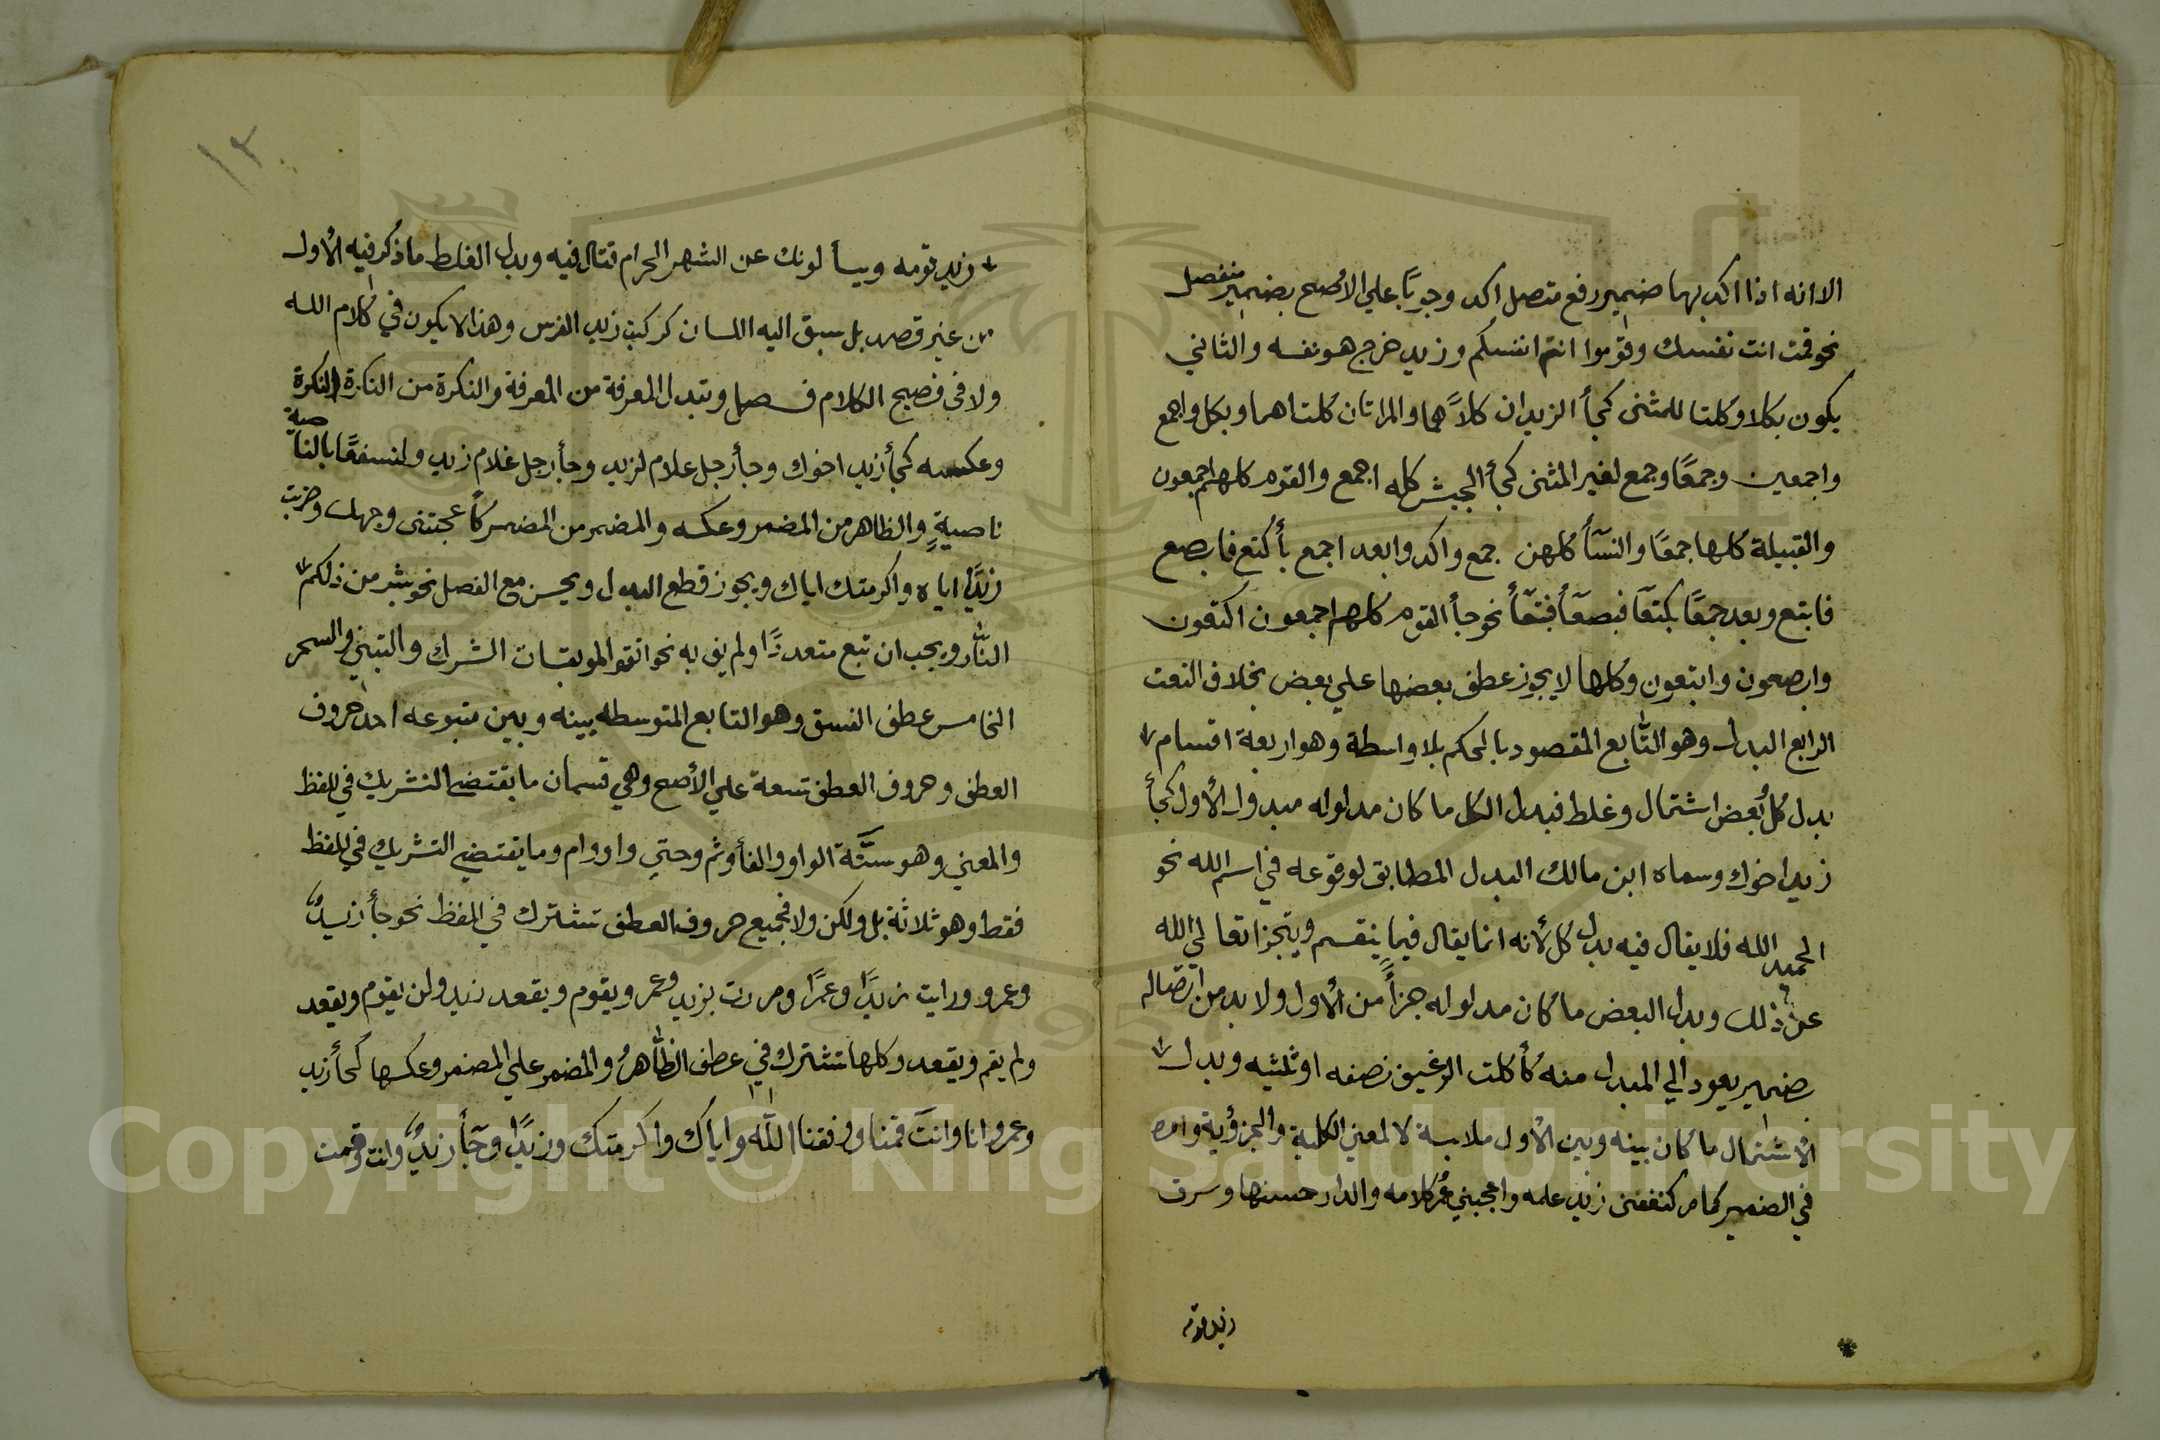 الا انه اذا اكد بهما ضمير رفع متصل اكد وجوبًا علي الأصح بضمير منفصل
نحو قمت انت نفسك وقوموا انتم انفسكم وزيد خرج هو نفسه والثاني
يكون بكلا وكلتا للمثنى كجأ الزيدان كلاهما والمراتان كلتاهما وبكل واجمع
واجمعين وجمعًا وجمع لغير المثنى كجأ الجيش كله اجمع والقوم كلهم اجمعون
والقبيلة كلها جمعًا والنسآ كلهن جمع واكدوا بعد اجمع بأكتع فابصع
فابتع وبعد جمعًا بكتعآ فبصعأ فبتعأ نحو جأ القوم كلهم اجمعون اكتعون
وابصعون وابتعون وكلها لا يجوز عطف بعضها علي بعض بخلاف النعت
الرابع البدل وهو التابع المقصود بالحكم بلا واسطة وهو اربعة اقسام
بدل كل بعض اشتمال وغلط فبدل الكل ما كان مدلوله مدلول الأول كجأ
زيد اخوك وسماه ابن مالك البدل المطابق لوقوعه في اسم الله نحو
الحميد الله فلا يقال فيه بدل كل لأنه انما يقال فيما ينقسم ويتجزا تعالي الله
عن ذلك وبدل البعض ما كان مدلوله جزأً من الأول ولا بد من اتصاله
بضمير يعود الي المبدل منه كأكلت الرغيف نصفه او ثلثيه وبدل
الأشتمال ما كان بينه وبين الأول ملابسة لا لمعني الكلية والجزؤية وامره
في الضمير كما مر كنفعني زيد علمه واعجبني عمر كلامه والدار حسنها وسرق
زيد ثوبه
١٢
زيد ثوبه ويسألونك عن الشهر الحرام قتال فيه وبدل الغلط ما ذكر فيه الأول
من غير قصد بل سبق اليه اللسان كركبت زيد الفرس وهذا لا يكون في كلام الله
ولا في فصيح الكلام فصل وتبدل المعرفة من المعرفة والنكرة من النكرة والنكرة
وعكسه كجأ زيد اخوك وجأ رجل غلام لزيد وجأ رجل غلام زيد ولنسفعًا بالناصية
ناصيةٍ والظاهر من المضمر وعكسه والمضمر من المضمر كأعجبتنى وجهك وضربت
زيدًا اياه واكرمتك اياك ويجوز قطع البدل ويحسن مع الفصل نحو بشر من ذلكم
النار ويجب ان تبع متعددًا ولم يف به نحو اتقوا الموبقات الشرك والتبني والسحر
الخامس عطف النسق وهو التابع المتوسطه بينه وبين متبوعه احد حروف
العطف وحروف العطف تسعة علي الأصح وهي قسمان ما يقتضي التشريك في للفظ
والمعني وهو ستة الواو والفأ وثم وحتي واو وام وما يقتضي التشريك في للفظ
فقط وهو ثلاثة بل ولكن ولا فجميع حروف العطف تشترك في المفظ نحو جأ زيدٌ
وعمرو ورايت زيدًا وعمرًا ومررت بزيد وعمرو ويقوم ويقعد زيد ولن يقوم ويقعد
ولم يقم ويقعد وكلها تشترك في عطف الظاهر والمضمر علي المضمر وعكسها كجأ زيد
وعمرو انا وانتَ قمنا ووفقنا الله واياك واكرمتك وزيدًا وجآ زيدٌ وانت وقمت
Copyright © King Saud University